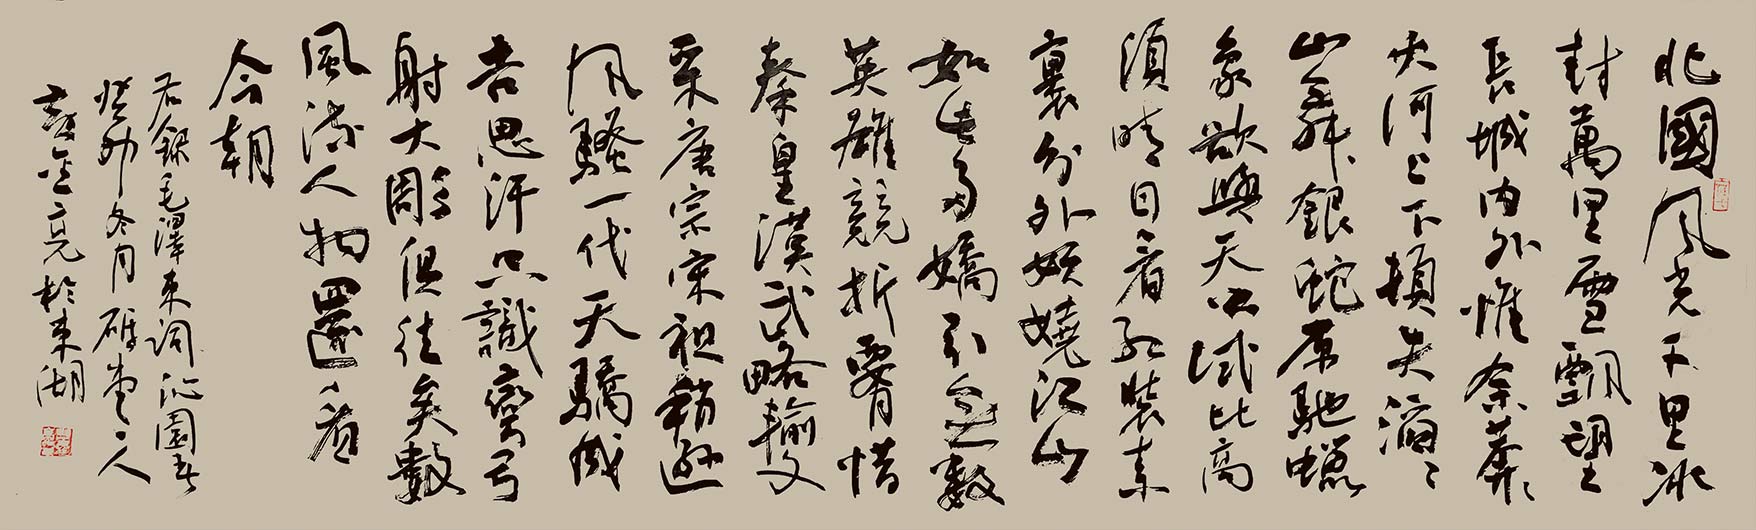 北國风光千里冰
封萬里雪飄望
長城内外惟余莽〻
大河上下頓失滔〻
山舞銀蛇原馳蠟
象欲與天公試比高
須晴日看紅裝素
裹分外妖嬈江山
如此多嬌引無數
英雄競折腰惜
秦皇漢武略輸文
采唐宗宋祖稍遜
风騷一代天驕成
吉思汗只識彎弓
射大雕俱往矣數
風流人物還看
今朝
右錄毛澤東詞沁園春
癸卯冬月 人
金亮於東湖